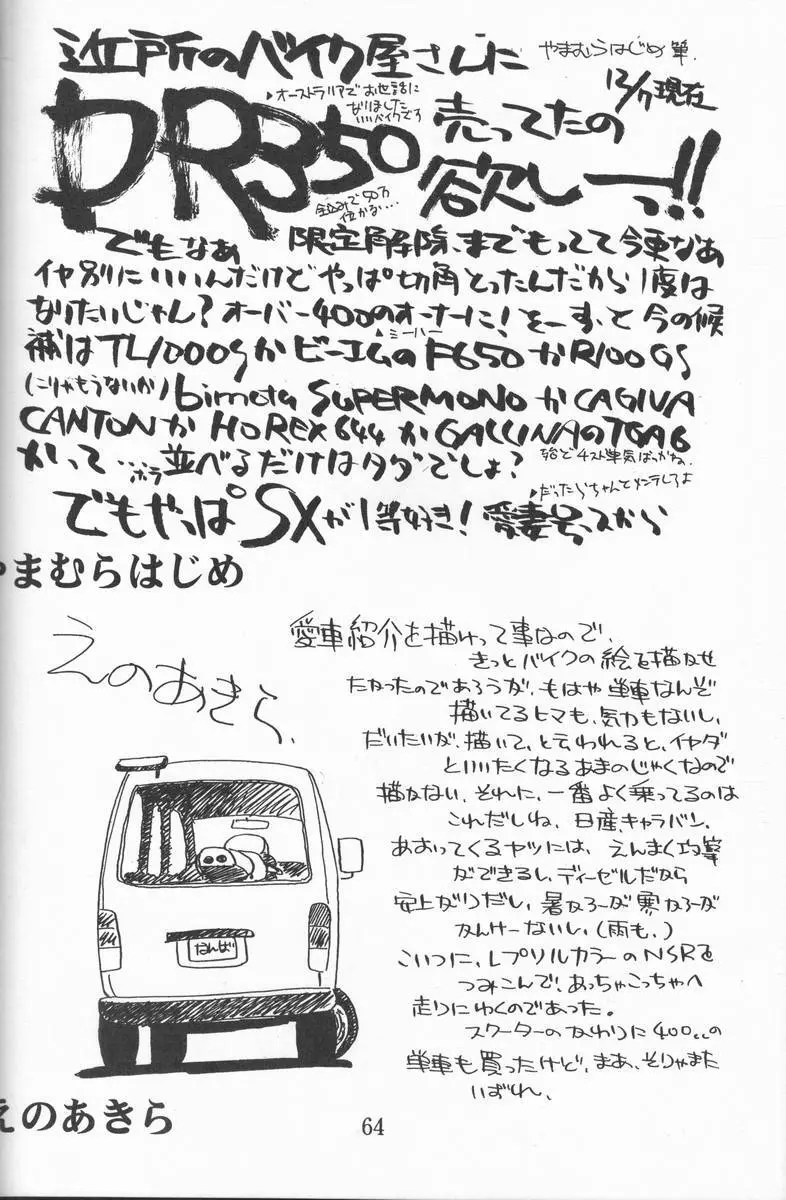 近所のバイク屋さんに
やまむらはじめ 筆.
12/17現在
▸オーストラリアでお世話に
なりました
いいバイクです
DR350
売ってたの
欲しーっ!!
全込みで50万
位かな…
でもなぁ 限定解除、までもってて今更なぁ
イヤ別にいいんだけどやっぱ切角とったんだから1度は
なりたいじゃん? オーバー400のオーナーに! をーすっと今の候
▴ミーハー
補はTL1000SかビーエムのF650かR100GS
(こりゃもうないか) bimota SUPERMONOかCAGIVA
CANYONかHOREX644かGALLINAのTGA6
かって…ホラ 並べるだけはタダでしょ?
▸だったらちゃんとメンテしろよ
でもやっぱSXが1等好き! 愛妻号っスから
やまむらはじめ
えのあきら.
愛車紹介を描けって事なので、
きっとバイクの絵を描かせ
たかったのであろうが、もはや単車なんぞ
描いてるヒマも、気力もないし、
だいたいが、描いて、と云われると、イヤダ
といいたくなるあまのじゃくなので
描かない、それに、一番よく乗ってるのは
これだしね、日産、キャラバン、
あおってくるヤツには、えんまく攻撃
ができるし、ディーゼルだから
安上がりだし、暑かろーが寒かろーが
かんけーないし、(雨も、)
こいつに、レプソルカラーのNSRを
つみこんで、あっちゃこっちゃへ
走りにゆくのであった。
スクーターのかわりに400ccの
単車も買ったけど、まあ、そりゃまた
いずれ、
なんば
えのあきら
64